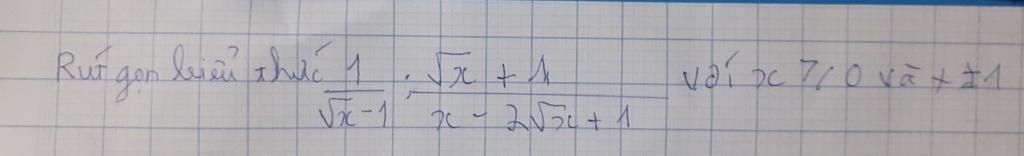 Rút gọn biểu thức \frac{1}{\sqrt{x}-1} : \frac{\sqrt{x}+1}{x-2\sqrt{x}+1} với x ≥ 0 và x ≠ 1